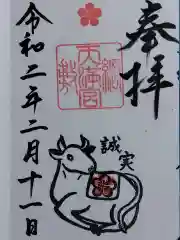 奉拝
天満宮
誠実
令和二年二月十一日